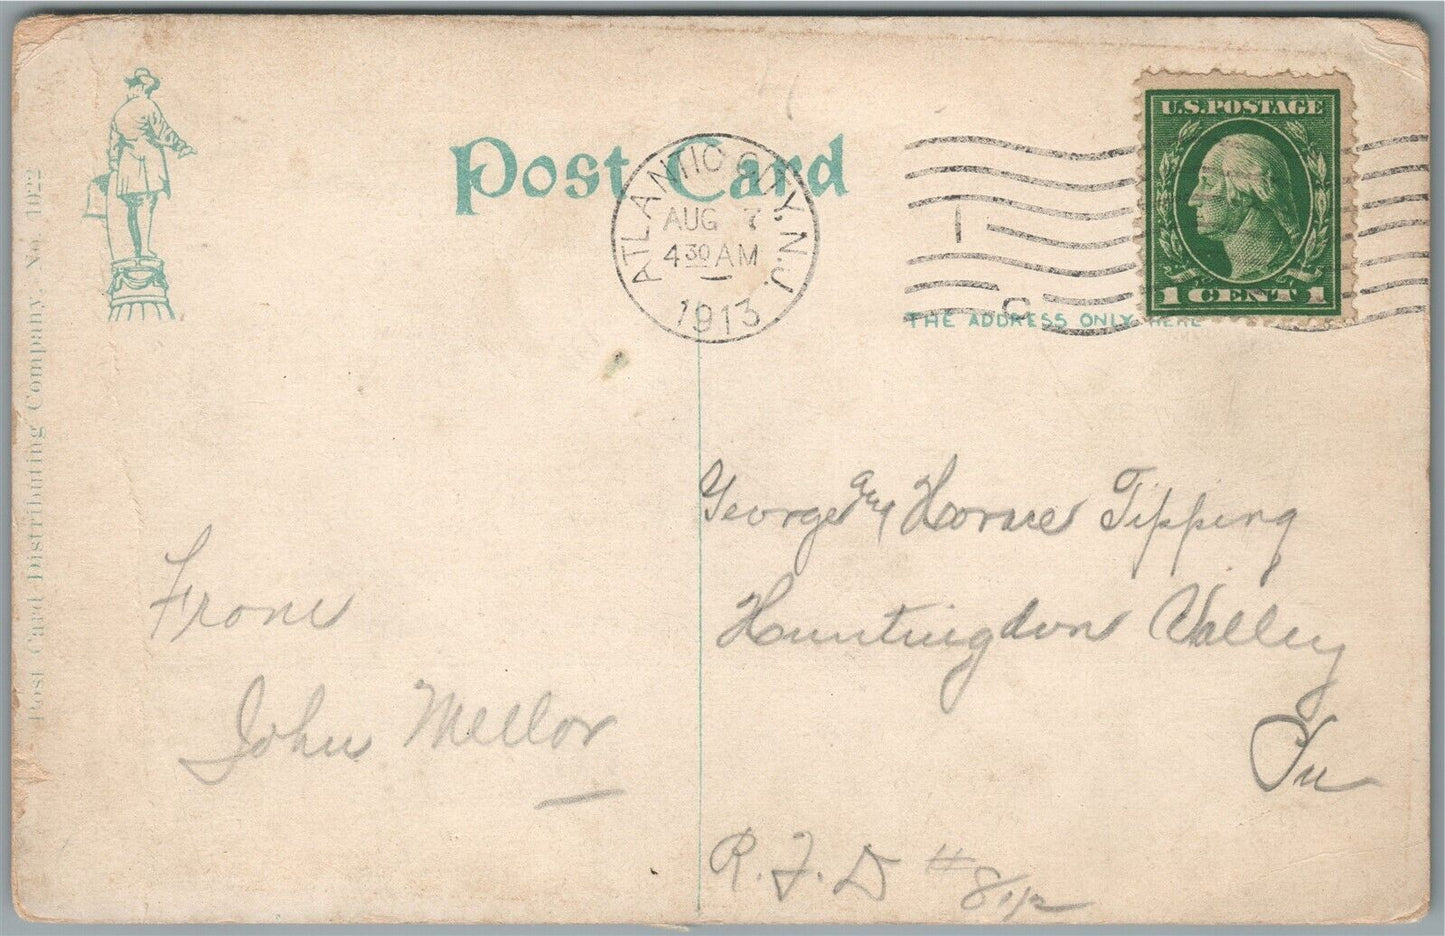 Post Card
ATLANTIC CITY, N.J.
AUG 7
4 30 AM
1913
1
C
U.S. POSTAGE
1 CENT 1
THE ADDRESS ONLY HERE
Post Card Distributing Company, No. 1922
From
John Mellor
George and Horace Tipping
Huntingdon Valley
Pa
R. F. D #